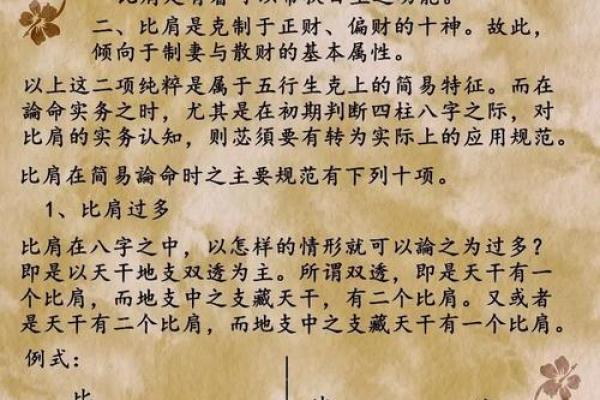 二、比肩是克制于正财、偏财的十神。故此，
倾向于制妻与散财的基本属性。
以上这二项纯粹是属于五行生克上的简易特征。而在
論命实务之时，尤其是在初期判断四柱八字之际，对
比肩的实务认知，则苾須要有转为实际上的应用规范。
比肩在简易論命时之主要规范有下列十项。
1、比肩过多
比肩在八字之中，以怎样的情形就可以論之为过多？
即是以天干地支双透为主。所谓双透，即是天干有一
个比肩，而地支中之支藏天干，有二个比肩。又或者
是天干有二个比肩，而地支中之支藏天干有一个比肩。
例式：
比